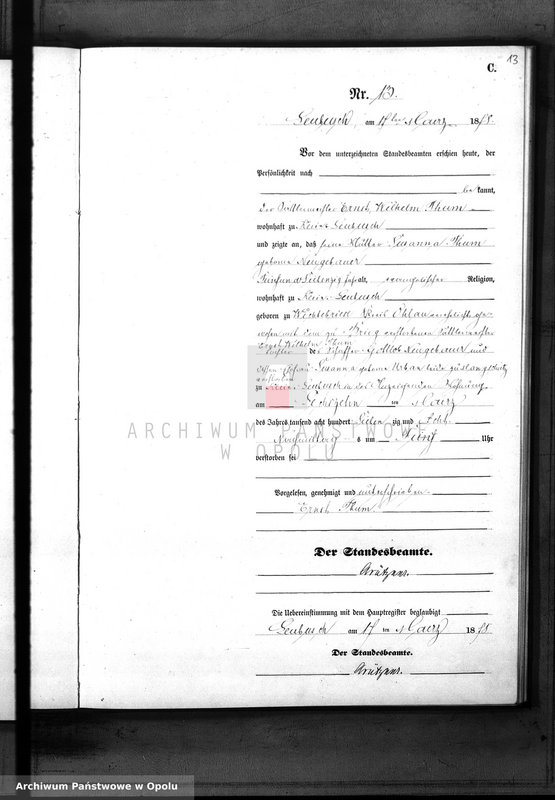 13
C.
Nr. 13.
Leubusch, am 17ten Maerz 1878.
Vor dem unterzeichneten Standesbeamten erschien heute, der
Persönlichkeit nach
be kannt,
der Sattlermeister Ernst Wilhelm Thum
wohnhaft zu Klein Leubusch
und zeigte an, daß seine Mutter Susanna Thum
geborne Neugebauer
Fünfundsiebenzig Jahr alt, evangelischer Religion,
wohnhaft zu Klein Leubusch
geboren zu Kreis Ohlau
mit dem zu Brieg verstorbenen Sattlermeister
Ernst Wilhelm Thum
Tochter des Gottlob Neugebauer und
dessen Ehefrau Susanna geborne Urban beide zu
verstorben
zu Klein Leubusch in des Wohnung
am Sechszehn ten Maerz
des Jahres tausend acht hundert Sieben zig und Acht
Nachmittag s um Uhr
verstorben sei
Vorgelesen, genehmigt und unterschrieben
Ernst Thum
Der Standesbeamte.
Die Uebereinstimmung mit dem Hauptregister beglaubigt
Leubusch am 17 ten Maerz 1878
Der Standesbeamte.
ARCHIWUM PAŃSTWOWE
W OPOLU
Archiwum Państwowe w Opolu